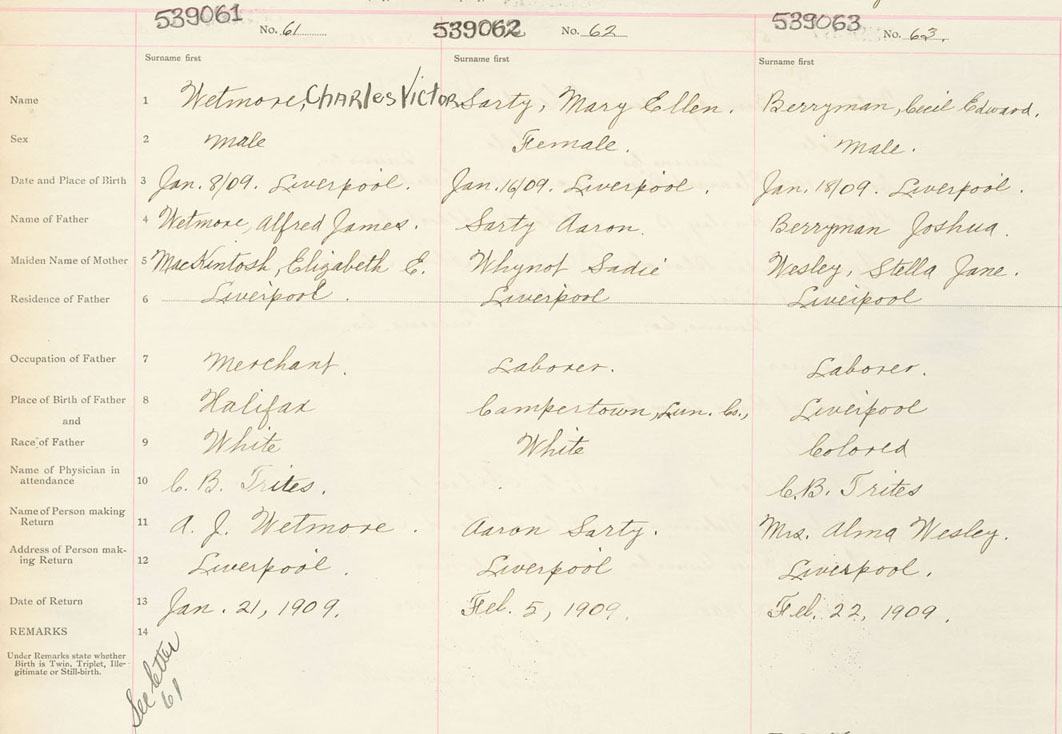 539061 No. 61 539062 No. 62 539063 No. 63.
Surname first Surname first Surname first
Name 1 Wetmore, Charles Victor Sarty, Mary Ellen. Berryman, Cecil Edward.
Sex 2 Male Female. Male.
Date and Place of Birth 3 Jan. 8/09. Liverpool. Jan. 16/09. Liverpool. Jan. 18/09. Liverpool.
Name of Father 4 Wetmore, Alfred James. Sarty Aaron. Berryman Joshua.
Maiden Name of Mother 5 MacKintosh, Elizabeth E. Whynot Sadie Wesley, Stella Jane.
Residence of Father 6 Liverpool. Liverpool Liverpool
Occupation of Father 7 Merchant. Laborer. Laborer.
Place of Birth of Father 8 Halifax Campertown, Lun. Co., Liverpool
and
Race of Father 9 White White Colored
Name of Physician in
attendance 10 C. B. Trites. C.B. Trites
Name of Person making
Return 11 A. J. Wetmore. Aaron Sarty. Mrs. Alma Wesley.
Address of Person mak-
ing Return 12 Liverpool. Liverpool Liverpool.
Date of Return 13 Jan. 21, 1909. Feb. 5, 1909. Feb. 22, 1909.
REMARKS 14
Under Remarks state whether
Birth is Twin, Triplet, Ille-
gitimate or Still-birth.
See letter
61